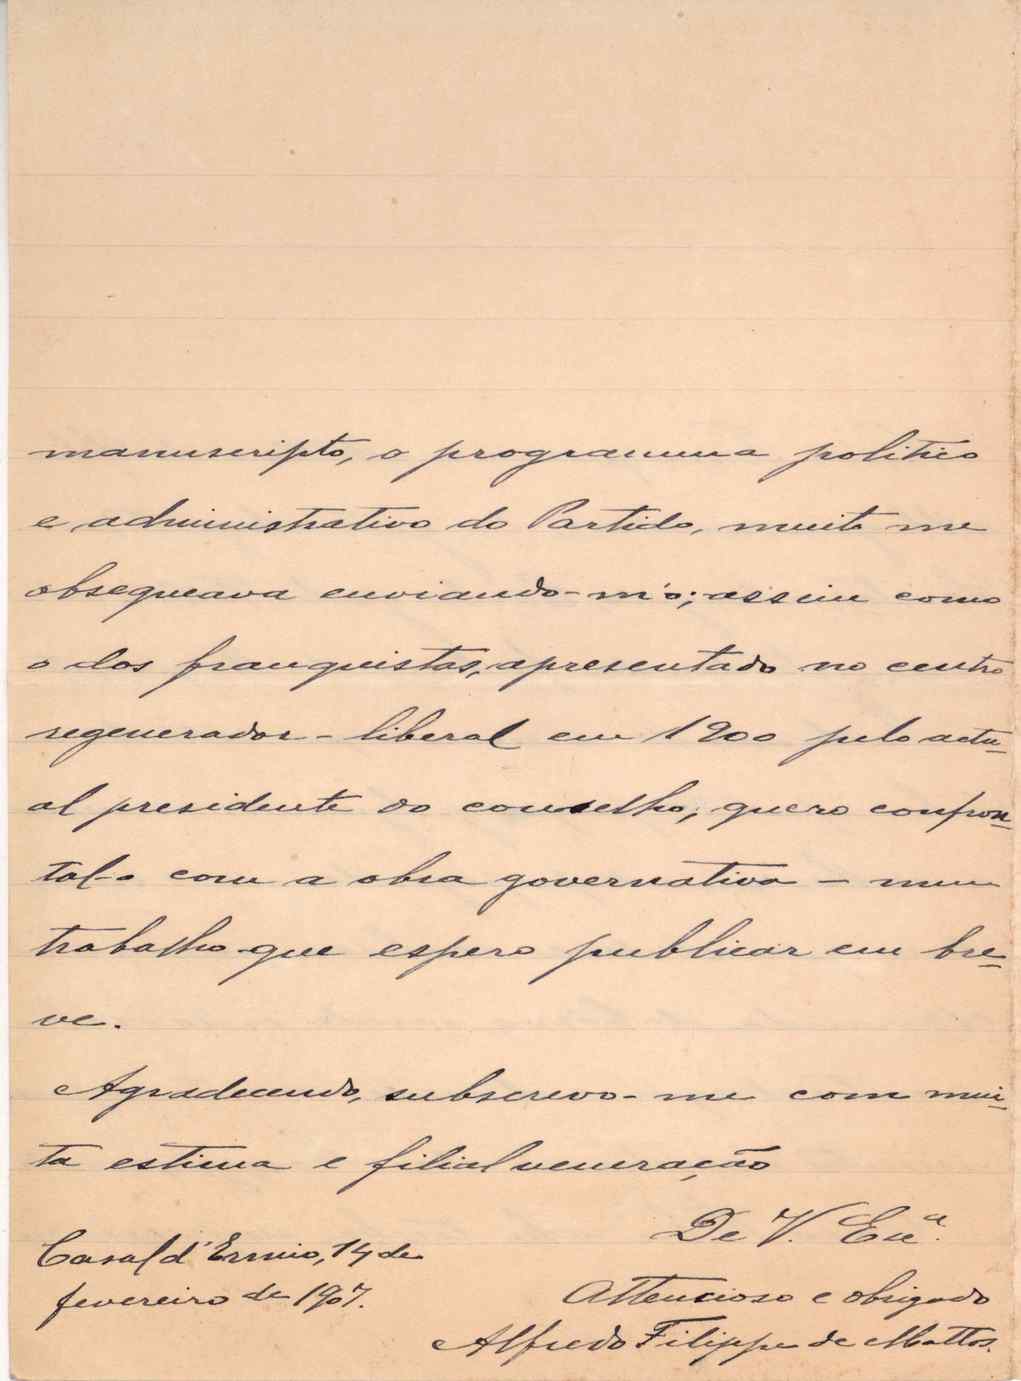 manuscripto, o programma politico
e administrativo do Partido, muito me
obsequeava enviando-m'o; assim como
o dos franquistas, apresentado no centro
regenerador-liberal em 1900 pelo actu-
al presidente do conselho; quero confron-
tal-o com a obra governativa - num
trabalho que espero publicar em bre-
ve.
Agradecendo, subscrevo-me com mui-
ta estima e filial veneração
De V. Exª.
Casal d'Ermio, 14 de
fevereiro de 1907.
Attencioso e obrigado
Alfredo Filippe de Mattos.